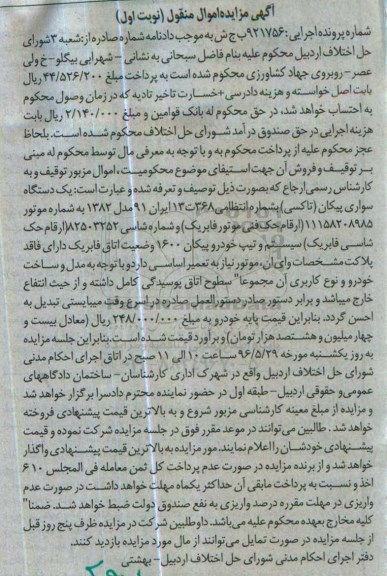 آگهی مزایده اموال منقول (نوبت اول)
شماره پرونده اجرایی: ۹۲۱۷۵۶ ب ج ش به موجب دادنامه شماره صادره از: شعبه ۳ شورای
حل اختلاف اردبیل محکوم علیه بنام فاضل سبحانی به نشانی - شهرابی بیگلو - خ ولی
عصر - روبروی جهاد کشاورزی محکوم شده است به پرداخت مبلغ ۴۴/۵۲۶/۲۰۰ ریال
بابت اصل خواسته و هزینه دادرسی + خسارت تاخیر تادیه که در زمان وصول محکوم
به احتساب خواهد شد، در حق محکوم له بانک قوامین و مبلغ ۲/۱۴۰/۰۰۰ ریال بابت
هزینه اجرایی در حق صندوق در آمد شورای حل اختلاف محکوم شده است. بلحاظ
عجز محکوم علیه از پرداخت محکوم به و با توجه به معرفی مال توسط محکوم له مبنی
بر توقیف و فروش آن جهت استیفای موضوع محکومیت، اموال مزبور توقیف و به
کارشناس رسمی ارجاع که بصورت ذیل توصیف و تعرفه شده و عبارت است: یک دستگاه
سواری پیکان (تاکسی) بشماره انتظامی ۳۶۸ت۱۳ ایران ۹۱ مدل ۱۳۸۲ به شماره موتور
۱۱۱۵۸۲۰۸۹۸۵ (ارقام حک فنی موتور فابریک) و شماره شاسی ۸۲۵۰۳۲۵۲ (ارقام حک
شاسی فابریک) سیستم و تیپ خودرو پیکان ۱۶۰۰ وضعیت اتاق فابریک دارای فاقد
پلاکت مشخصات وای آن، موتور نیاز به تعمیر اساسی دارد و با توجه به مدل و ساخت
خودرو و نوع کاربری آن مجموعا" سطوح اتاق پوسیدگی کامل داشته و از حیث انتفاع
خارج میباشد و برابر دستور صادر دستورالعمل صادره در اسرع وقت میبایستی تبدیل به
احسن گردد. بنابراین قیمت پایه خودرو به مبلغ ۲۴۸/۰۰۰/۰۰۰ ریال (معادل بیست و
چهار میلیون و هشتصد هزار تومان) برآورد قیمت شده است. بنابراین جلسه مزایده
به روز یکشنبه مورخه ۹۶/۵/۲۹ ساعت ۱۰ الی ۱۱ صبح در اتاق اجرای احکام مدنی
شورای حل اختلاف اردبیل واقع در شهرک اداری کارشناسان - ساختمان دادگاههای
عمومی و حقوقی اردبیل - طبقه اول در حضور نماینده محترم دادسرا برگزار خواهد شد
و مزایده از مبلغ معینه کارشناسی مزبور شروع و به بالاترین قیمت پیشنهادی فروخته
خواهد شد. طالبین می‌توانند در موعد مقرر فوق در جلسه مزایده شرکت نموده و قیمت
پیشنهادی خودشان را اعلام نمایند. مورد مزایده به بالاترین قیمت پیشنهادی واگذار
خواهد شد و از برنده مزایده در صورت عدم پرداخت کل ثمن معامله فی المجلس ۶۱۰
اخذ و نسبت به پرداخت مابقی آن حداکثر یکماه مهلت خواهد داشت در صورت عدم
واریزی در مهلت مقرره درصد واریزی به نفع صندوق دولت ضبط خواهد شد. ضمنا"
کلیه مخارج بعهده محکوم علیه می‌باشد. داوطلبین شرکت در مزایده ظرف پنج روز قبل
از جلسه مزایده در صورت تمایل می‌توانند از مال مورد مزایده بازدید کنند.
دفتر اجرای احکام مدنی شورای حل اختلاف اردبیل - بهشتی